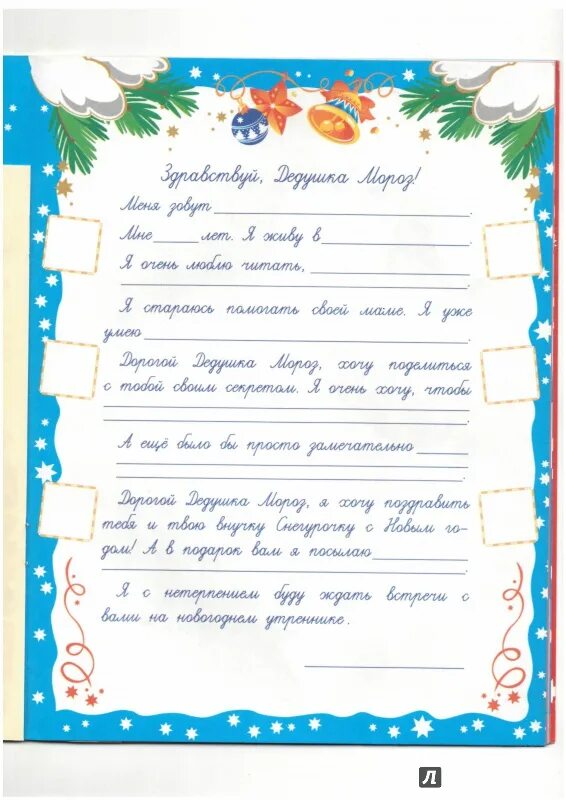 Здравствуй, Дедушка Мороз!
Меня зовут
Мне лет. Я живу в
Я очень люблю читать,
Я стараюсь помогать своей маме. Я уже
умею
Дорогой Дедушка Мороз, хочу поделиться
с тобой своим секретом. Я очень хочу, чтобы
А ещё было бы просто замечательно
Дорогой Дедушка Мороз, я хочу поздравить
тебя и твою внучку Снегурочку с Новым го-
дом! А в подарок вам я посылаю
Я с нетерпением буду ждать встречи с
вами на новогоднем утреннике.
Л